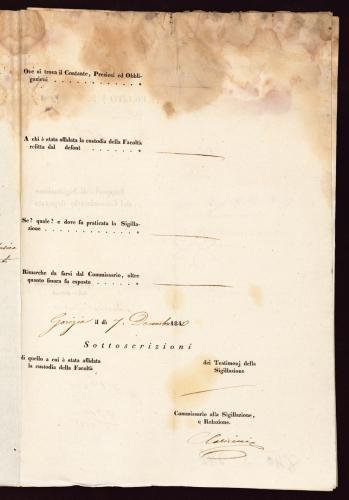 Ove si trova il Contante, Preziosi ed Obbli-
gazioni . . . . . . . . . . . . . "
A chi è stata affidata la custodia della Facoltà
relitta dal defont . . . . . . . "
Se? quale? e dove fu praticata la Sigilla-
zione . . . . . . . . . . . . . . "
Rimarche da farsi dal Commissario, oltre
quanto finora fu esposto . . . . . . "
Gorizia il dì 7. Decembre 18
Sottoscrizioni
di quello a cui è stata affidata
la custodia della Facoltà
dei Testimonj della
Sigillazione
Commissario alla Sigillazione,
e Relazione.